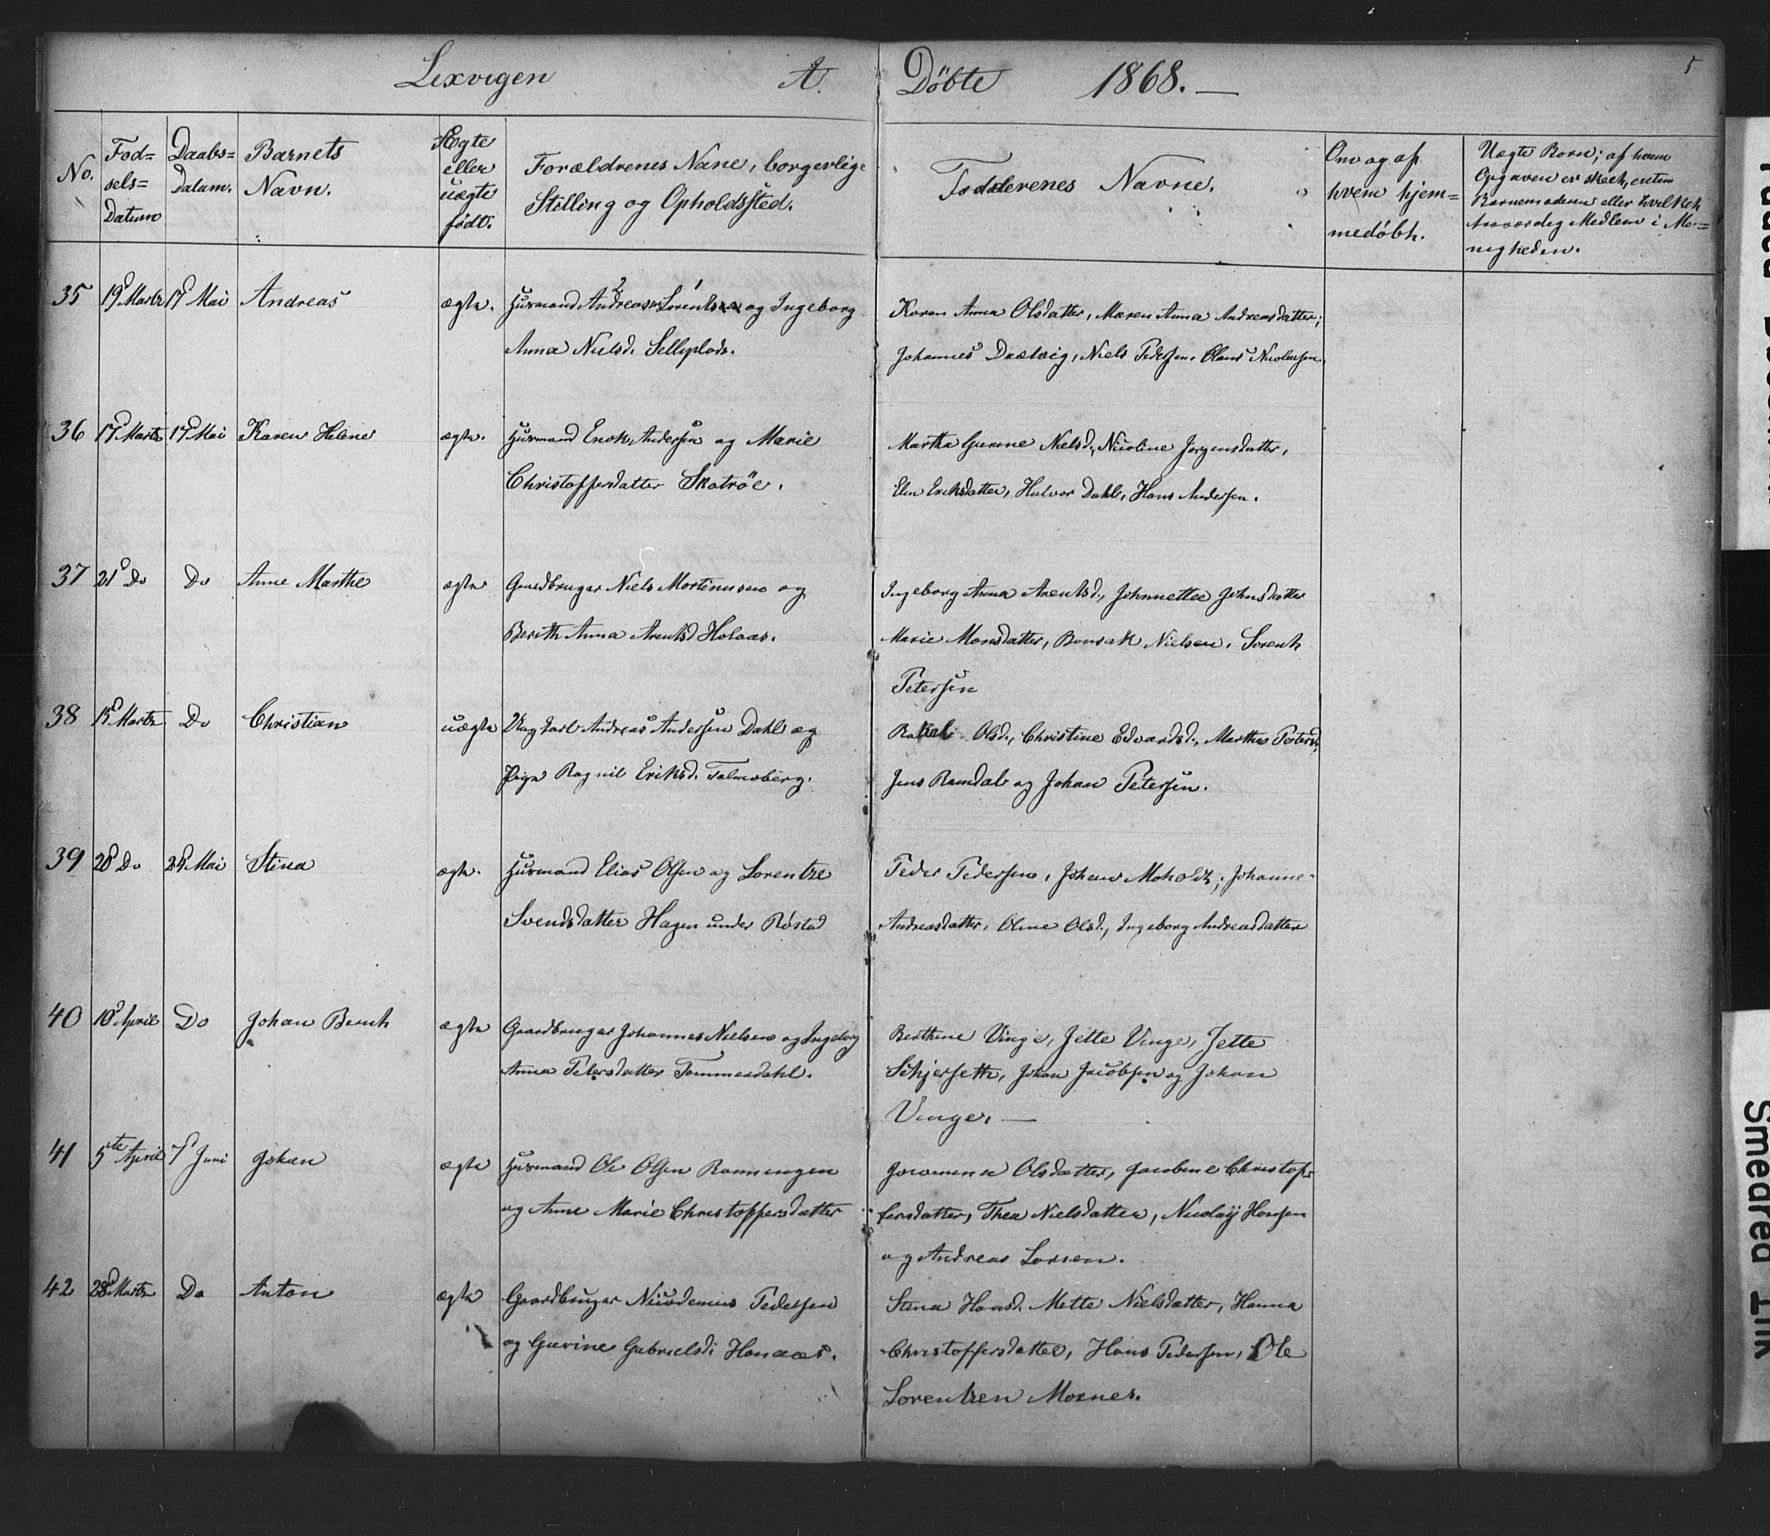 Lexvigen A. Döbte 1868. 5
No. Fød= sels= Datum
Daabs= Datum.
Barnets Navn.
Ægte eller uægte født.
Forældrenes Navne, borgerlige
Stilling og Opholdssted.
Fadderenes Navne.
Om og af hvem hjem= medöbt.
Uægte Born; af hvem
Opgaven er skeet, enten
Barnemoderen eller hvilket
troværdig Medlem i Me=
nigheden.
35 19d Martz 17d Mai Andreas ægte. Husmand Andreas Lorents og Ingeborg
Anna Nielsd. Selliplads.
Karen Anna Olsdatter, Maren Anna Andreasdatter,
Johannes Dretvig, Niels Pedersen, Olaus Nicolaisen
36 17d Martz 17d Mai Karen Helene ægte. Husmand Enok Andersen og Marie
Christoffersdatter Skatröe.
Martha Gurine Nielsd., Nicoline Jørgensdatter,
Elen Eriksdatter, Halvor Dahl, Hans Andersen.
37 21d Do Do Anne Marthe ægte Gaardbruger Niels Mortinusen og
Berith Anna Arentsd Holaas.
Ingeborg Anna Arentsd., Johnnette Johnsdatter
Marie Monsdatter, Bonsak Nielsen, Lorents
Petersen
38 15d Martz Do Christian uægte Ungkarl Andreas Andersen Dahl og
Pige Ragnil Eriksd. Folmoberg.
Rakel Olsd., Christine Edvardsd., Marthe Petersd.
Jens Ramdal og Johan Petersen.
39 20d Do 24d Mai Stina ægte. Husmand Elias Olsen og Lorentze
Svendsdatter Hagen under Röstad
Peder Pedersen, Johan Moholdt, Johanne
Andreasdatter, Oline Olsd., Ingeborg Andreasdatter
40 10d April Do Johan Bernt ægte Gaardbruger Johannes Nielsen og Ingeborg
Anna Petersdatter Tømmerdahl.
Berthine Vinge, Jette Vinge, Jette
Schjerfeth, Johan Jacobsen og Johan
Vinge. —
41 5te April 7d Juni Johan ægte Husmand Ole Olsen Ranningen
og Anne Marie Christoffersdatter
Olsdatter, Jacobine Christof=
fersdatter, Thea Nielsdatter, Nicolaÿ Hansen
og Andreas Larsen.
42 28d Martz Do Anton ægte Gaardbruger Nicodemus Pedersen
og Gurine Gabrielsd. Hanaas.
Stina Hansd. Mette Nielsdatter, Hanna
Christoffersdatter, Hans Pedersen, Ole
Lorentzen Moxnes.
Smedred Ink